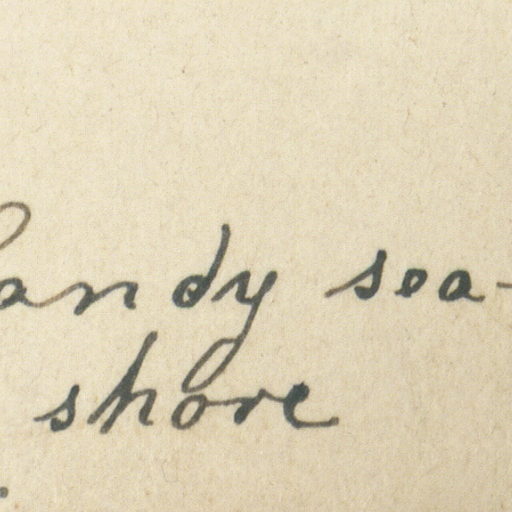 Sandy sea-
shore